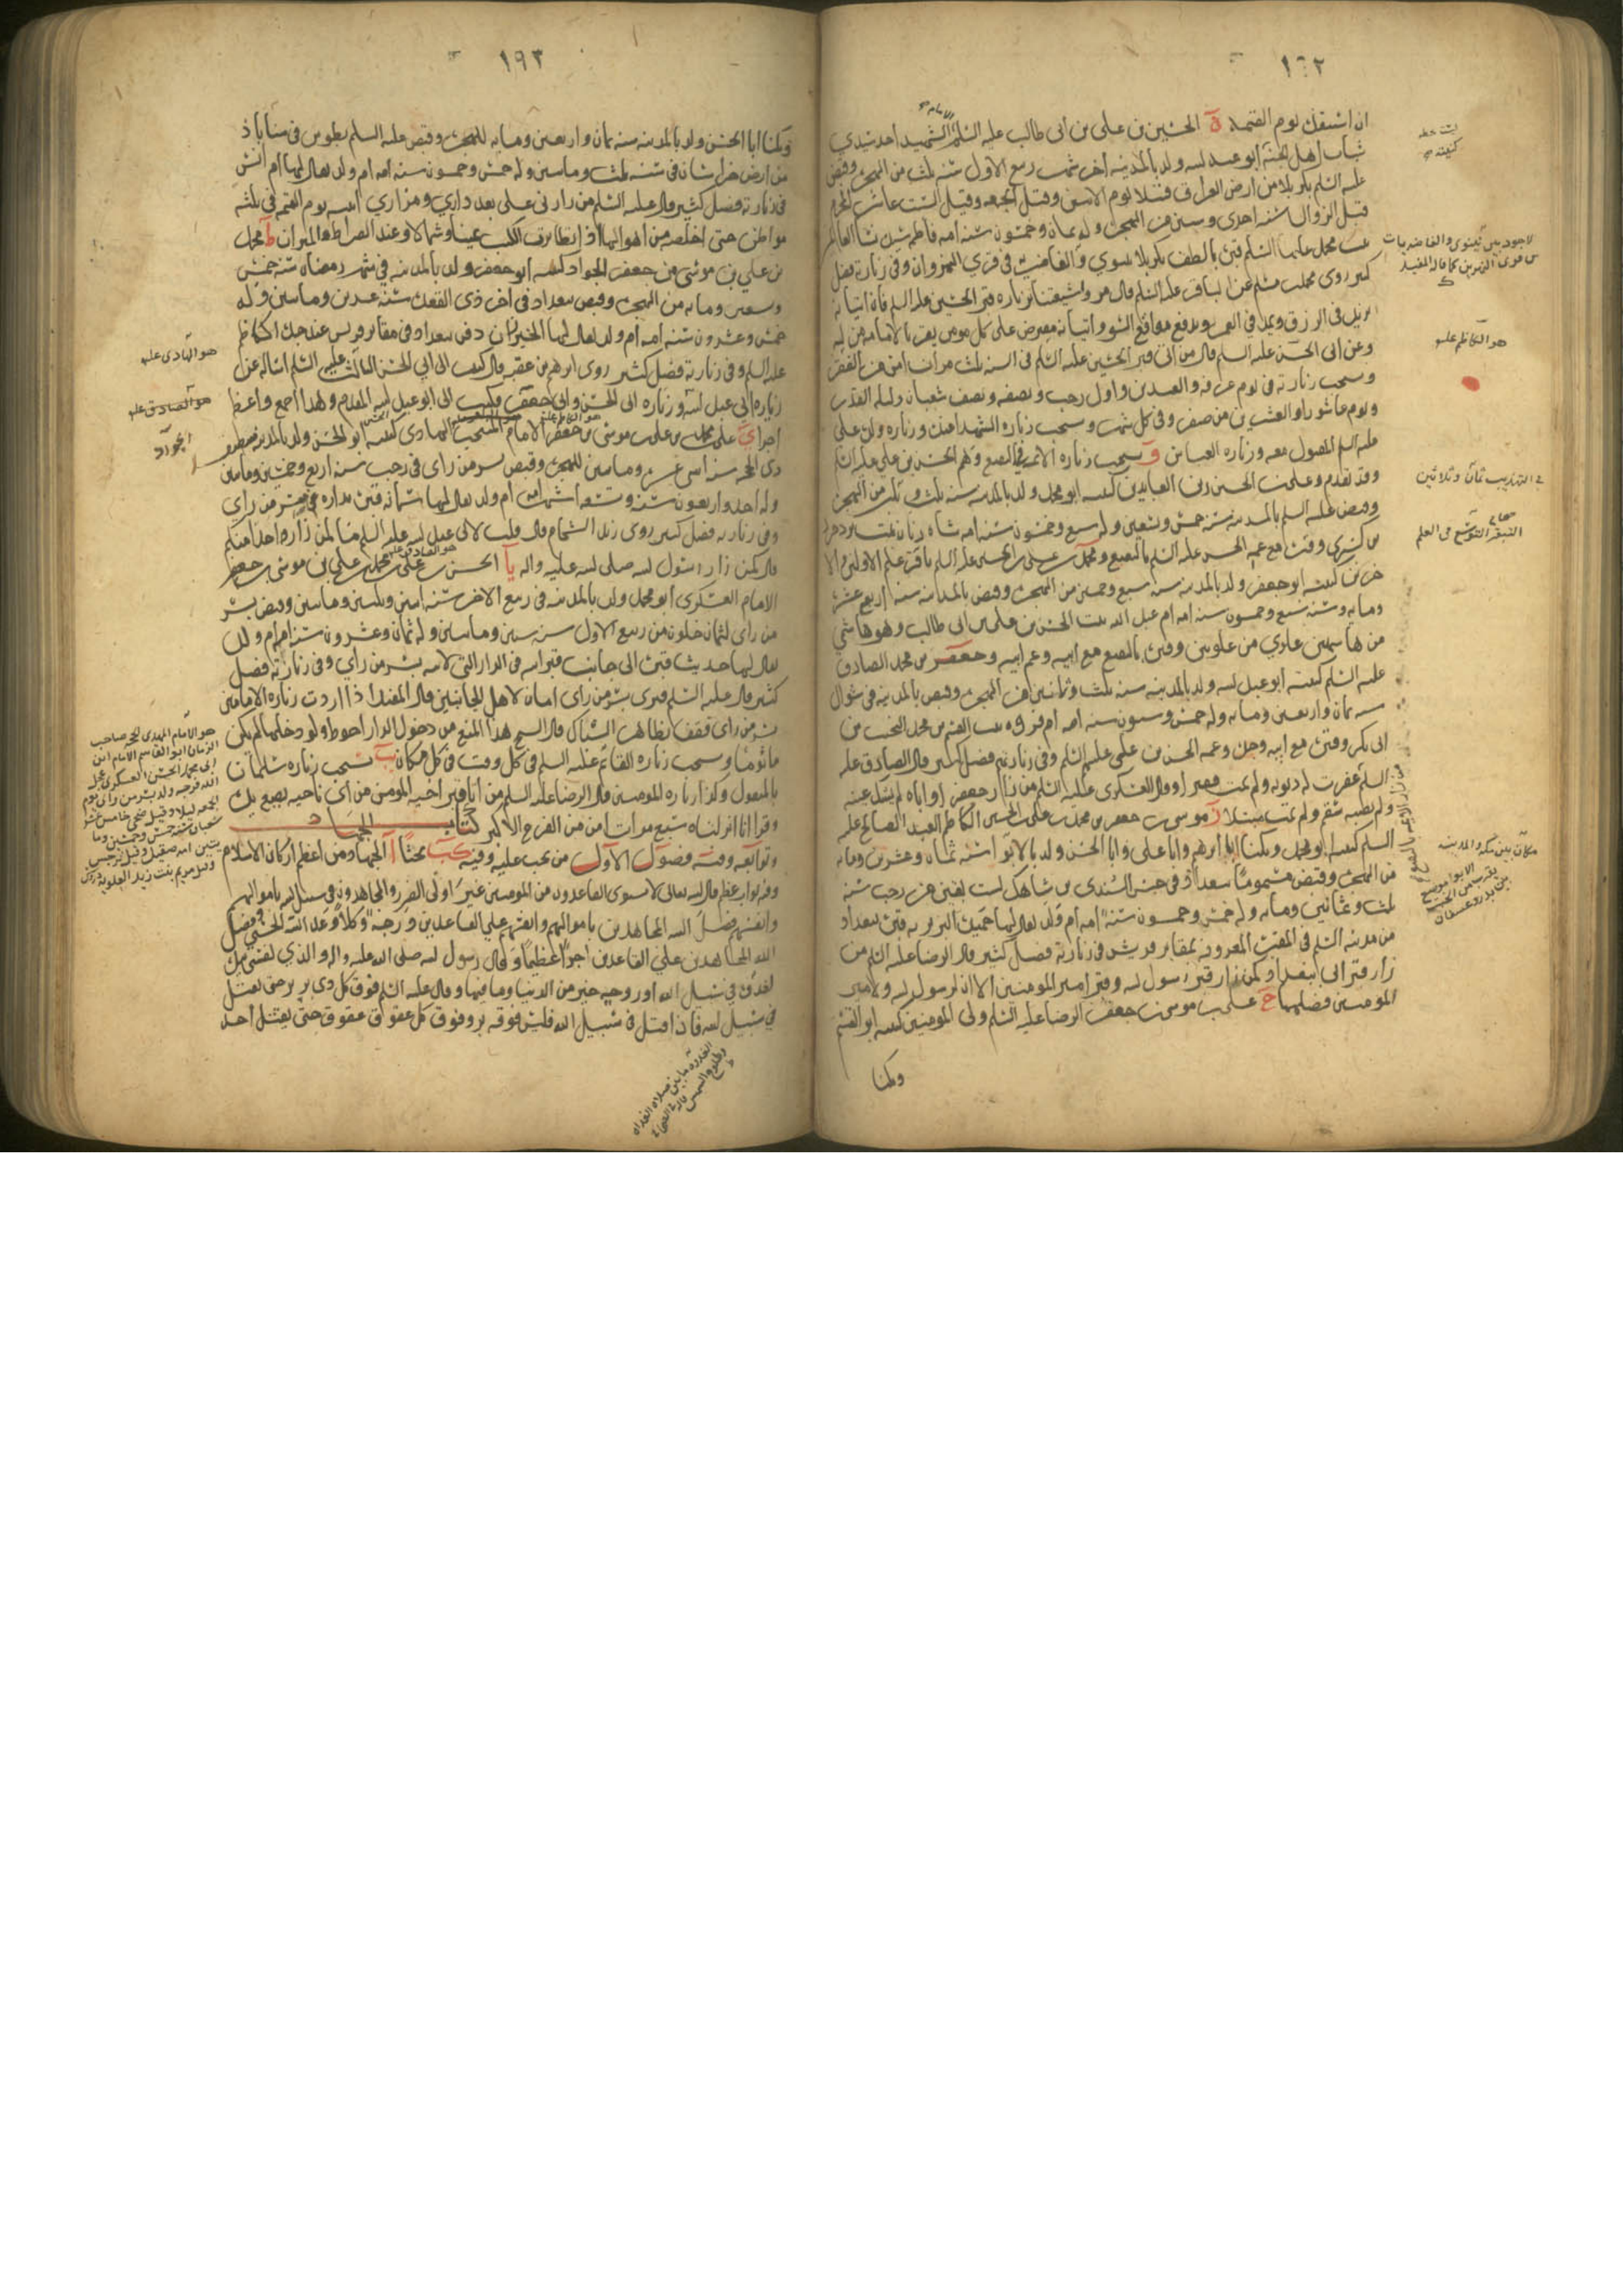 ١٦٢
ان اشفعك يوم القيمة ة الحسين بن علي بن ابي طالب عليه السلم الامام الشهيد احد سيدي
شباب اهل الجنة ابو عبد الله ولد بالمدينة اخر شهر ربيع الاول سنة ثلث من الهجرة وقبض
عليه السلم بكربلا من ارض العراق قتيلا يوم الاثنين وقيل الجمعة وقيل السبت عاشر المحرم
قبل الزوال سنة احدى وستين من الهجرة وله ثمان وخمسون سنة امه فاطمة سيدة نسا العالمين
بنت محمد عليهما السلم قبره بالطف بكربلا بنينوي والغاضرية في قري النهروان وفي زيارته فضل
كثير روى محمد بن مسلم عن الباقر عليه السلم قال مروا شيعتنا بزيارة قبر الحسين عليه السلم فان اتيانه
يزيد في الرزق ويمد في العمر ويدفع مواقع السوء واتيانه مفترض على كل مومن يقر بالامامة من الله
وعن ابي الحسن عليه السلم قال من اتى قبر الحسين عليه السلم في السنة ثلث مرات امن من الفقر
وتستحب زيارته في يوم عرفة والعيدين واول رجب ونصفه ونصف شعبان وليلة القدر
ويوم عاشوراء والعشرين من صفر وفي كل شهر وتستحب زيارة الشهدا معه وزيارة ولده علي
عليه السلم المقتول معه وزيارة العباس و تستحب زيارة الائمة في البقيع وهم الحسن بن علي عليه السلم
وقد تقدم وعلي بن الحسين زين العابدين كنيته ابو محمد ولد بالمدينة سنة ثمان وثلثين من الهجرة
وقبض عليه السلم بالمدينة سنة خمس وتسعين وله سبع وخمسون سنة امه شاه زنان بنت يزدجرد
بن كسرى وقبره مع عمه الحسن عليه السلم بالبقيع ومحمد بن علي بن الحسين عليه السلم باقر علم الاولين والا
خرين كنيته ابو جعفر ولد بالمدينة سنة سبع وخمسين من الهجرة وقبض بالمدينة سنة اربع عشرة
ومايه وسنه سبع وخمسون سنة امه ام عبد الله بنت الحسن بن علي بن ابي طالب وهو هاشمي
من هاشميين علوي من علويين وقبره بالبقيع مع ابيه وعم ابيه وجعفر بن محمد الصادق
عليه السلم كنيته ابو عبد الله ولد بالمدينة سنة ثلث وثمانين من الهجرة وقبض بالمدينة في شوال
سنة ثمان واربعين ومايه وله خمس وستون سنة امه ام فروة بنت القسم بن محمد النجيب بن
ابي بكر وقبره مع ابيه وجده وعمه الحسن بن علي عليهم السلم وفي زيارتهم فضل كثير قال الصادق عليه
السلم غفرت له ذنوبه ولم يمت فقيرا وقال العسكري عليه السلم من زار جعفر او اباه لم يشتك عينه
ولم يصبه سقم ولم يمت مبتلا ز موسى بن جعفر بن محمد بن علي بن الحسين الكاظم العبد الصالح عليه
السلم كنيته ابو محمد ويكنا ابا ابرهيم وابا علي وابا الحسن ولد بالابوا سنة ثمان وعشرين ومايه
من الهجرة وقبض مسموما ببغداد في حبس السندي بن شاهك لست بقين من رجب سنة
ثلث وثمانين ومايه وله خمس وخمسون سنة امه ام ولد يقال لها حميدة البربرية قبره ببغداد
من مدينة السلم في المقبرة المعروفة بمقابر قريش في زيارته فضل كثير قال الرضا عليه السلم من
زار قبر ابي ببغداد كمن زار قبر رسول الله وقبر امير المومنين الا ان لرسول الله ولامير
المومنين فضلهما ح علي بن موسى بن جعفر الرضا عليه السلم ولى المومنين كنيته ابو القسم
ويكنا
كنيته
هو الكاظم عليه
في التهذيب ثمان وثلاثين
صحاح
التبقر التوسع في العلم
مكان بين مكة والمدينة
١٩٣
ويكنا ابا الحسن ولد بالمدينة سنة ثمان واربعين ومايه للهجرة وقبض عليه السلم بطوس في سناباذ
من ارض خراسان في سنة ثلث ومايتين وله خمس وخمسون سنة امه ام ولد يقال لها ام البنين
في زيارته فضل كثير قال عليه السلم من زارني على بعد داري ومزاري اتيته يوم القيمة في ثلثة
مواطن حتى اخلصه من اهوالها اذا تطايرت الكتب يمينا وشمالا وعند الصراط والميزان ط محمد
بن علي بن موسى بن جعفر الجواد كنيته ابو جعفر ولد بالمدينة في شهر رمضان سنة خمس
وتسعين ومايه من الهجرة وقبض ببغداد في اخر ذي القعدة سنة عشرين ومايتين وله
خمس وعشرون سنة امه ام ولد يقال لها الخيزران دفن ببغداد في مقابر قريش عند جده الكاظم
عليه السلم وفي زيارته فضل كثير روى ابرهيم بن عقبة قال كتبت الى ابي الحسن الثالث عليه السلم اساله عن
زيارة ابي عبد الله وزيارة ابي الحسن وابي جعفر فكتب الى ابو عبد الله المقدم وهذا اجمع واعظم
اجرا ي علي بن محمد بن علي بن موسى بن جعفر الامام المنتجب الهادي كنيته ابو الحسن ولد بالمدينة منتصف
ذي الحجة سنة اثني عشرة ومايتين للهجرة وقبض بسر من راى في رجب سنة اربع وخمسين ومايتين
وله احد واربعون سنة وتسعة اشهر امه ام ولد يقال لها سمانة قبره بداره في سر من راى
وفي زيارته فضل كثير روى زيد الشحام قال قلت لابي عبد الله عليه السلم ما لمن زار واحدا منكم
قال كمن زار رسول الله صلى الله عليه واله يا الحسن بن علي بن محمد بن علي بن موسى بن جعفر
الامام العسكري ابو محمد ولد بالمدينة في ربيع الاخر سنة اثنين وثلثين ومايتين وقبض بسر
من راى لثمان خلون من ربيع الاول سنة ستين ومايتين وله ثمان وعشرون سنة امه ام ولد
يقال لها حديث قبره الى جانب قبر ابيه في الدار التي لابيه بسر من راي وفي زيارته فضل
كثير قال عليه السلم قبري بسر من راى امان لاهل الجانبين قال المفيد اذا اردت زيارة الامامين
بسر من راى فقف بظاهر الشباك قال الشيخ هذا المنع من دخول الدار احوط ولو دخلها لم يكن
ماثوما وتستحب زيارة القائم عليه السلم في كل وقت في كل مكان يب تستحب زيارة سلمان
بالمنقول وكذا زيارة المومنين قال الرضا عليه السلم من اتا قبر اخيه المومن من اي ناحيه يضع يده
وقرا انا انزلناه سبع مرات امن من الفزع الاكبر كتاب الجهاد
وتوابعه وفيه فصول الاول من يجب عليه وفيه كب بحثا ا الجهاد من اعظم اركان الاسلام
وفيه ثواب عظيم قال الله تعالى لا يستوى القاعدون من المومنين غير اولى الضرر والمجاهدون في سبيل الله باموالهم
وانفسهم فضل الله المجاهدين باموالهم وانفسهم على القاعدين درجة وكلا وعد الله الحسنى وفضل
الله المجاهدين على القاعدين اجرا عظيما وقال رسول الله صلى الله عليه واله والذي نفسي بيده
لغدوة في سبيل الله او روحة خير من الدنيا وما فيها وقال عليه السلم فوق كل ذي بر بر حتى يقتل
في سبيل الله فاذا قتل في سبيل الله فليس فوقه بر وفوق كل عقوق عقوق حتى يقتل احد
هو الهادي عليه
هو الصادق عليه
الجواد
هو الامام المهدي الحجة صاحب
الزمان ابو القاسم الامام ابن
ابي محمد الحسن العسكري عجل
الله فرجه ولد بسر من راى يوم
الجمعة ليلا وقيل ضحى خامس عشر
شعبان سنة خمس وخمسين وما
يتين امه صقيل وقيل نرجس
وقيل مريم بنت زيد العلوية
الغدوة ما بين صلاة الغداة
وطلوع الشمس